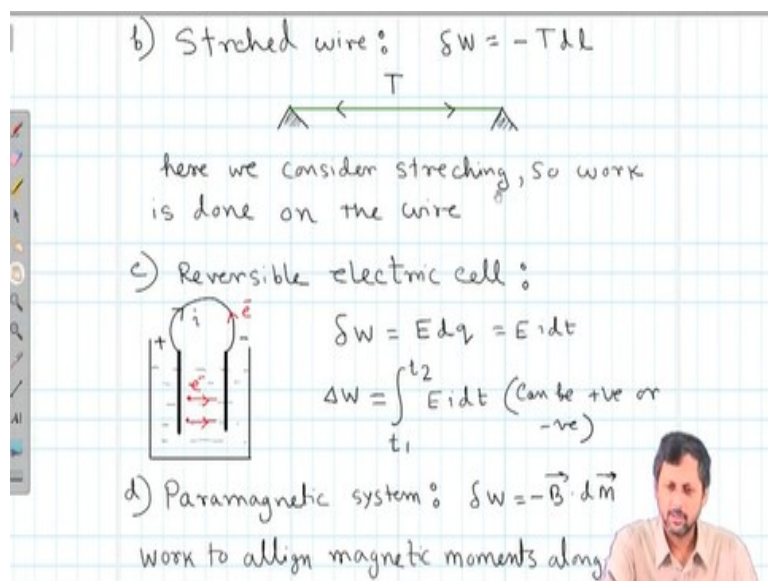 b) Strched wire : δW = - Tdl
T
here we consider streching, so work
is done on the wire
c) Reversible electric cell :
i e⁻
+ -
e⁻
δW = Edq = Eidt
ΔW = ∫ₜ₁ᵗ² Eidt (Can be +ve or
-ve)
d) Paramagnetic system : δW = -B⃗ · dM⃗
work to allign magnetic moments along
AI